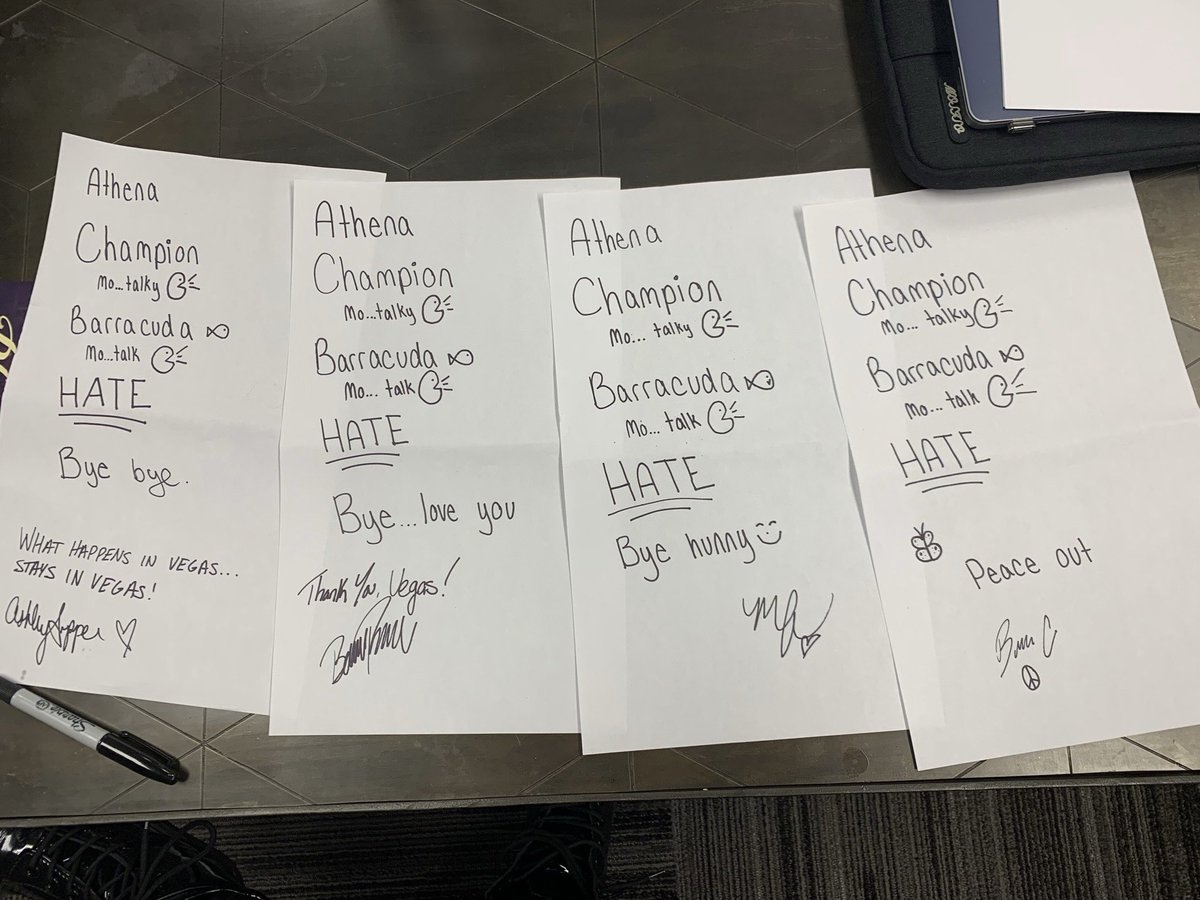 Athena
Champion
Mo...talky
Barracuda
Mo...talk
HATE
Bye bye.
WHAT HAPPENS IN VEGAS...
STAYS IN VEGAS!
Athena
Champion
Mo...talky
Barracuda
Mo... talk
HATE
Bye...love you
Thank You, Vegas!
Athena
Champion
Mo... talky
Barracuda
Mo... talk
HATE
Bye hunny
Athena
Champion
Mo... talky
Barracuda
Mo... talk
HATE
Peace out
Sharpie